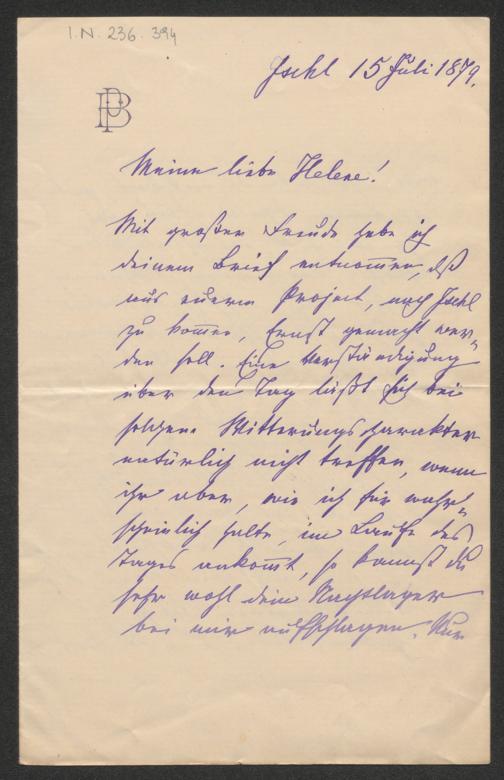 I.N. 236.394
Ischl 15 Juli 1879.
PB
Meine liebe Helene!
Mit großer Freude habe ich
deinem Brief entnommen, daß
aus euerm Project, nach Ischl
zu kommen, Ernst gemacht wer-
den soll. Eine Verständigung
über den Tag läßt sich bei
solchem Witterungscharakter
natürlich nicht treffen, wenn
ihr aber, wie ich für wahr-
scheinlich halte, im Laufe des
Tages ankommt, so kannst du
sehr wohl dein Nachtlager
bei mir aufschlagen. Nur